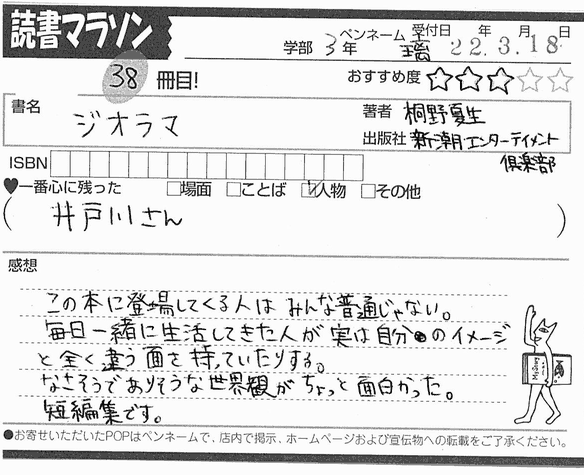 読書マラソン
学部 3年 ペンネーム 璃 受付日 22年3月18日
38 冊目!
おすすめ度 ★★★☆☆
書名 ジオラマ
著者 桐野夏生
出版社 新潮エンターテイメント
倶楽部
ISBN
♥一番心に残った □場面 □ことば ☑人物 □その他
(井戸川さん)
感想
この本に登場してくる人はみんな普通じゃない。
毎日一緒に生活してきた人が実は自分のイメージ
と全く違う面を持っていたりする。
なさそうでありそうな世界観がちょっと面白かった。
短編集です。
●お寄せいただいたPOPはペンネームで、店内で掲示、ホームページおよび宣伝物への転載をご了承ください。